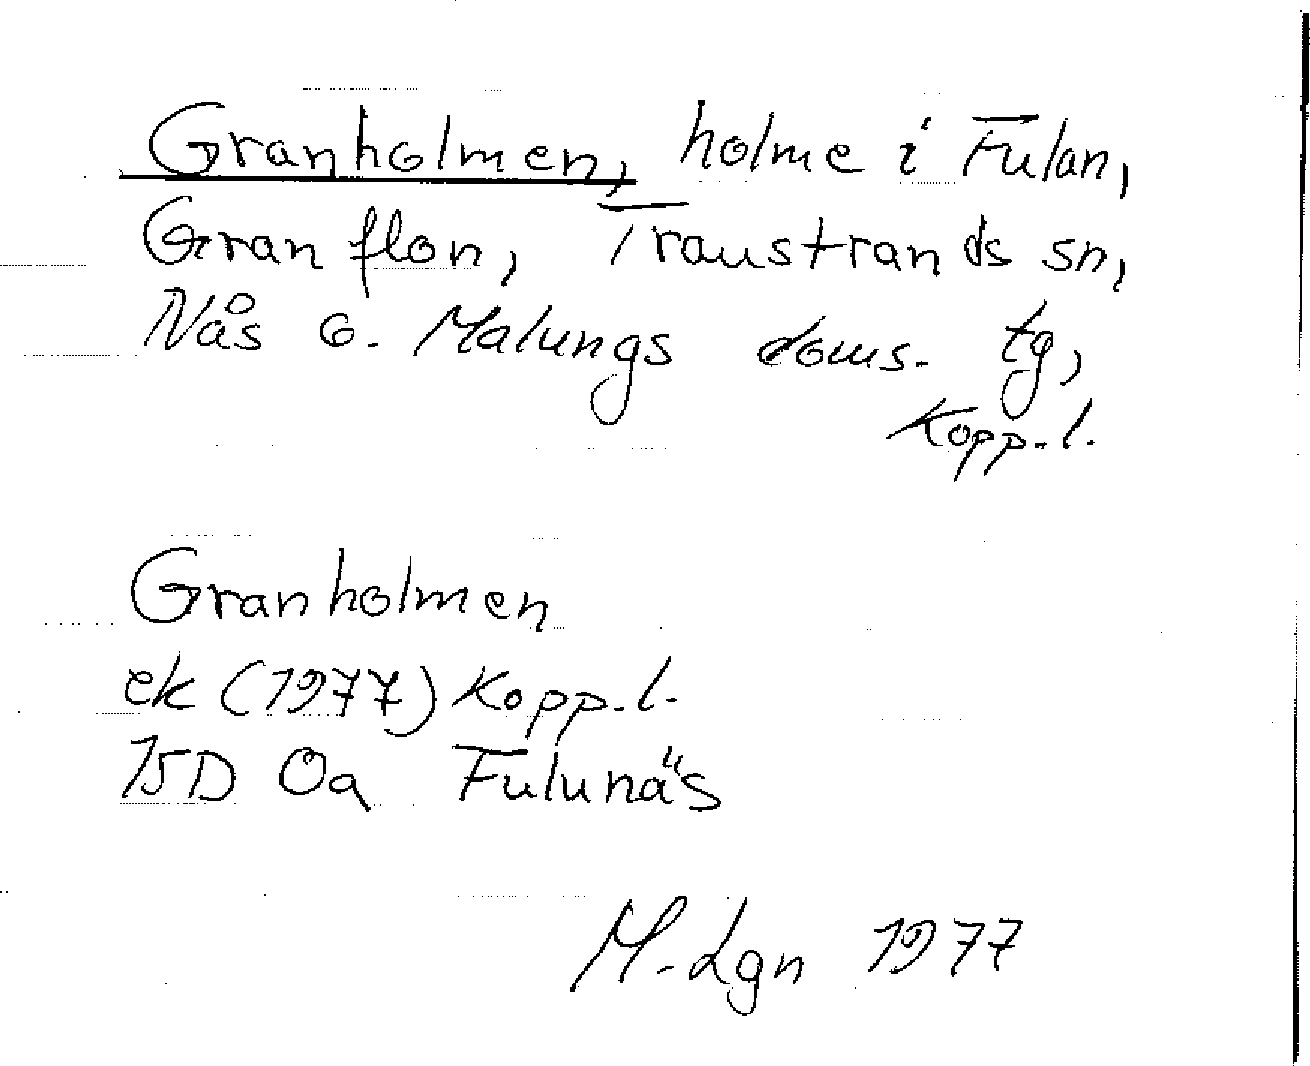 Granholmen, holme i Fulan,
Granflon, Transtrands sn,
Nås o. Malungs doms. tg,
Kopp. l.
Granholmen
ek (1977) Kopp. l.
15D 0a Fulunäs
M. Lgn 1977